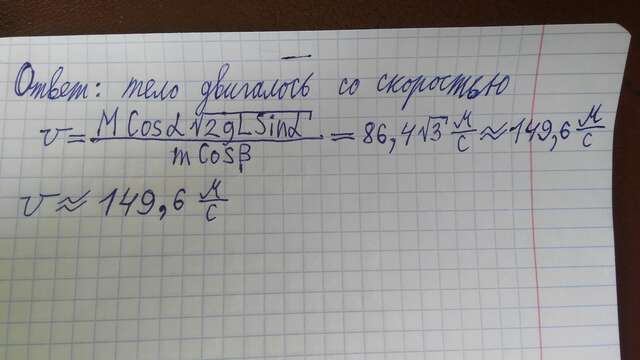 Ответ: тело двигалось со скоростью
v = M Cosα √2gL Sinα / m Cosβ = 86,4√3 м/с ≈ 149,6 м/с
v ≈ 149,6 м/с